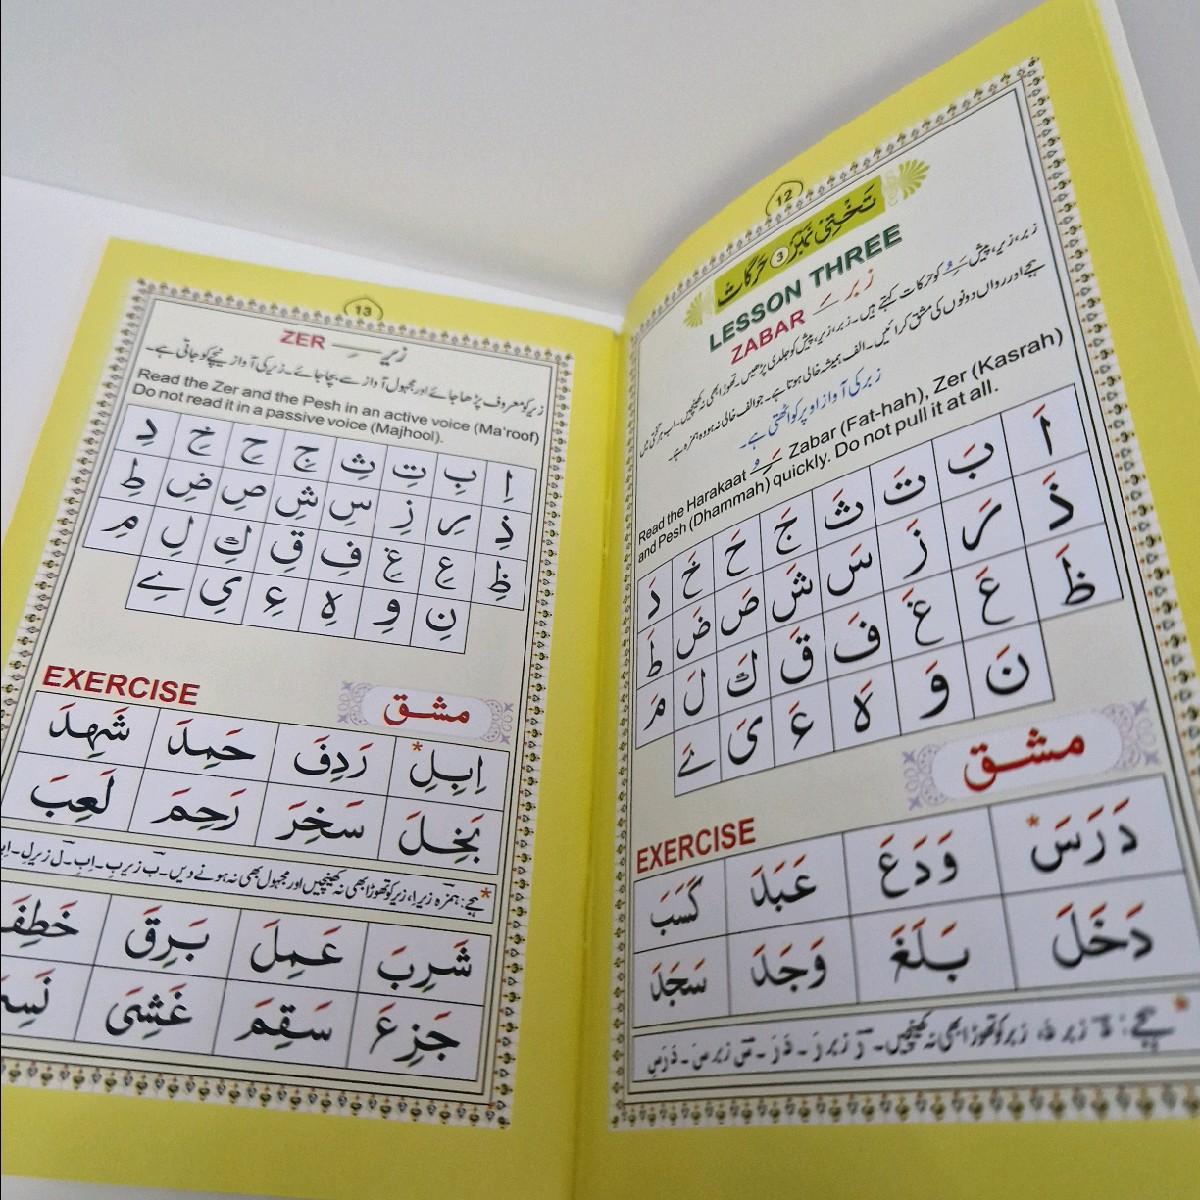 12
تَختِی نمبر 3 حَرَکَات
LESSON THREE
ZABAR زبر
زبر، زیر، پیش کو حرکات کہتے ہیں۔ زبر، زیر، پیش کو جلدی پڑھیں۔ تھوڑا بھی نہ کھینچیں۔
ہجے اور رواں دونوں کی مشق کرائیں۔ الف ہمیشہ خالی ہوتا ہے۔ جو الف خالی نہ ہو وہ ہمزہ ہے۔
زبر کی آواز اوپر کو اٹھتی ہے۔
Read the Harakaat ـَـِـُ Zabar (Fat-hah), Zer (Kasrah)
and Pesh (Dhammah) quickly. Do not pull it at all.
اَ بَ تَ ثَ جَ حَ خَ دَ
ذَ رَ زَ سَ شَ صَ ضَ طَ
ظَ عَ غَ فَ قَ كَ لَ مَ
نَ وَ هَ ءَ یَ ےَ
EXERCISE مشق
دَرَسَ* وَدَعَ عَبَدَ كَسَبَ
دَخَلَ بَلَغَ وَجَدَ سَجَدَ
13
ZER زیر
زیر کو معروف پڑھا جائے اور مجہول آواز سے بچا جائے۔ زیر کی آواز نیچے کو جاتی ہے۔
Read the Zer and the Pesh in an active voice (Ma'roof)
Do not read it in a passive voice (Majhool).
اِ بِ تِ ثِ جِ حِ خِ دِ
ذِ رِ زِ سِ شِ صِ ضِ طِ
ظِ عِ غِ فِ قِ كِ لِ مِ
نِ وِ هِ ءِ یِ ےِ
EXERCISE مشق
اِبِلِ* رَدِفَ حَمِدَ شَهِدَ
بَخِلَ سَخِرَ رَحِمَ لَعِبَ
*ہجے: ہمزہ زیر اِ، زیر کو تھوڑا بھی نہ کھینچیں اور مجہول بھی نہ ہونے دیں۔ ب زیر بِ۔ اِبِ۔ ل زیر لِ۔
شَرِبَ عَمِلَ بَرِقَ خَطِفَ
جَزِءَ سَقِمَ غَشِیَ